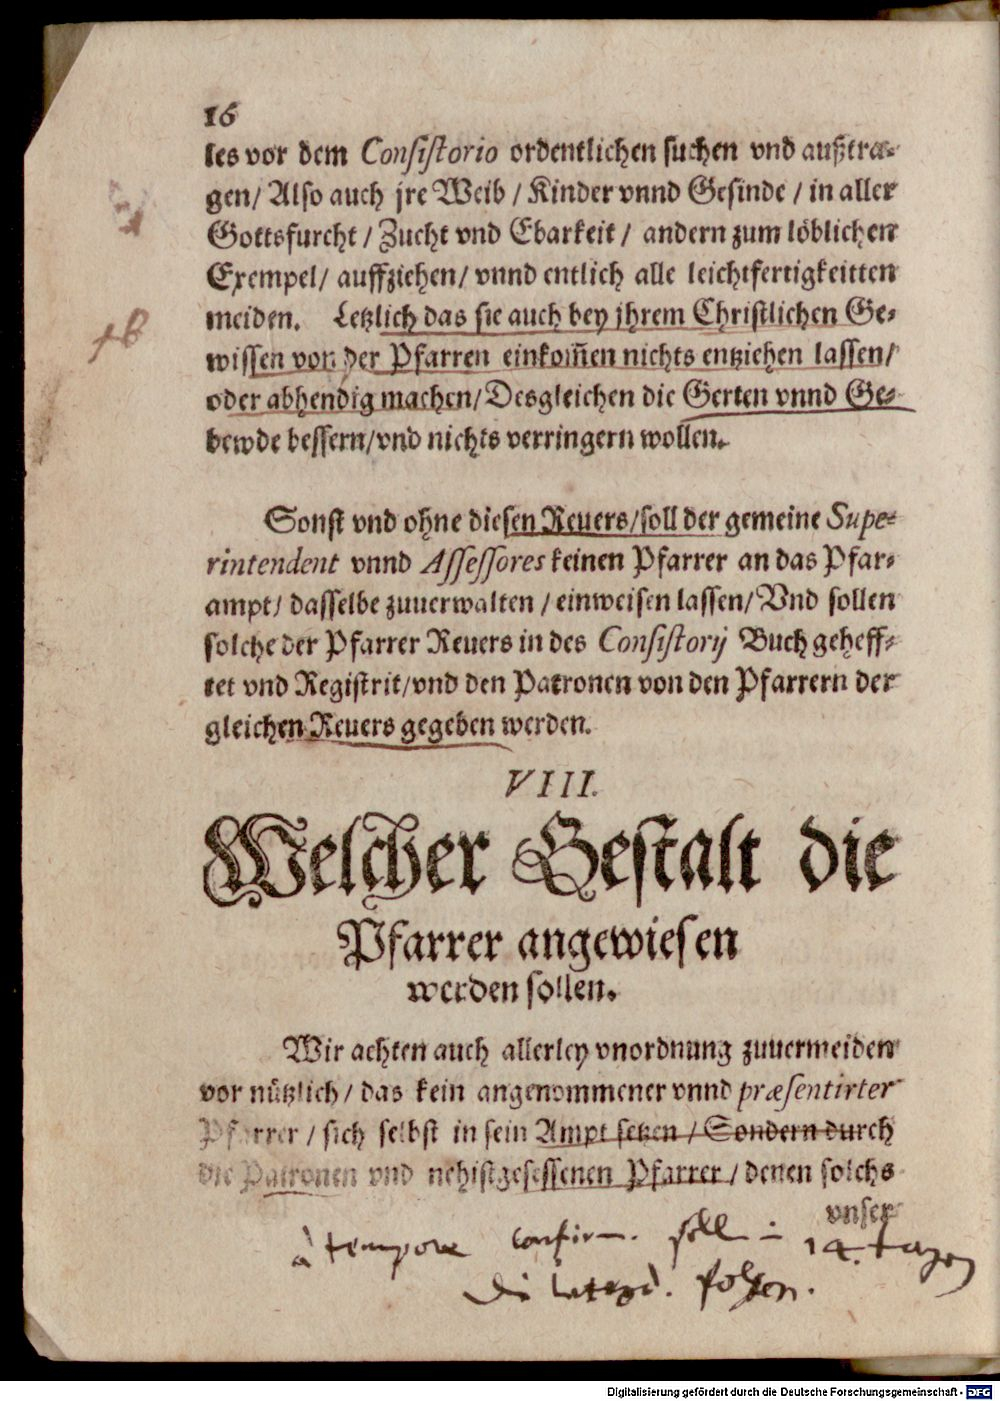 16
les vor dem Consistorio ordentlichen suchen vnd außtra-
gen/ Also auch jre Weib / Kinder vnnd Gesinde / in aller
Gottsfurcht / Zucht vnd Ebarkeit / andern zum löblichen
Exempel/ auffziehen/ vnnd entlich alle leichtfertigkeitten
meiden. Letzlich das sie auch bey jhrem Christlichen Ge-
wissen von der Pfarren einkom̃en nichts entziehen lassen/
oder abhendig machen/ Desgleichen die Gerten vnnd Ge-
bewde bessern/vnd nichts verringern wollen.
Sonst vnd ohne diesen Reuers/soll der gemeine Supe-
rintendent vnnd Assessores keinen Pfarrer an das Pfar-
ampt/ dasselbe zuuerwalten / einweisen lassen/ Vnd sollen
solche der Pfarrer Reuers in des Consistorij Buch geheff-
tet vnd Registrit/vnd den Patronen von den Pfarrern der
gleichen Reuers gegeben werden.
VIII.
Welcher Gestalt die
Pfarrer angewiesen
werden sollen.
Wir achten auch allerley vnordnung zuuermeiden
vor nützlich/ das kein angenommener vnnd præsentirter
Pfarrer / sich selbst in sein Ampt setzen / Sondern durch
die Patronen vnd nehistgesessenen Pfarrer / denen solchs
vnser
à tempore confirm. soll in 14. tagen
die folgen.
Digitalisierung gefördert durch die Deutsche Forschungsgemeinschaft - DFG